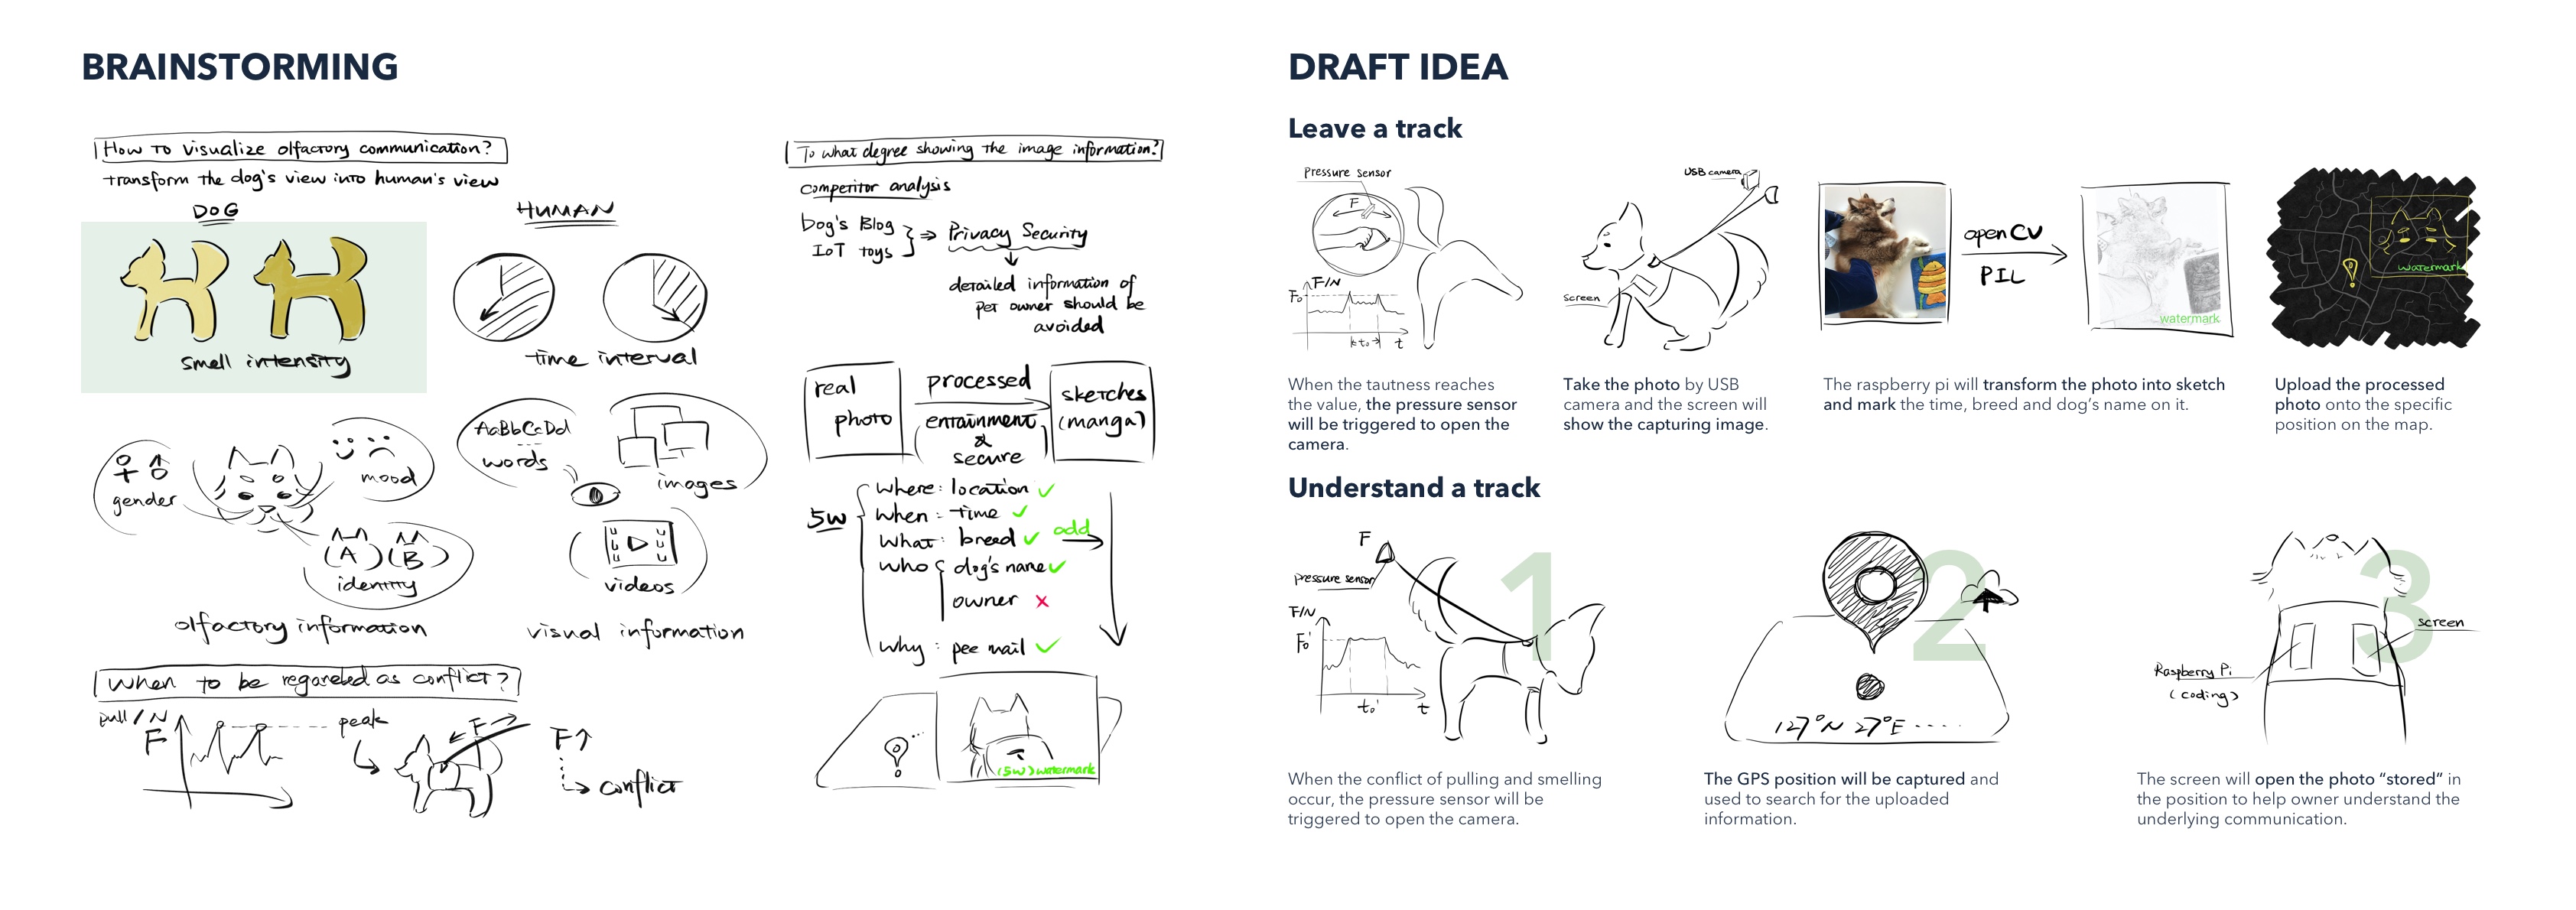 BRAINSTORMING
How to visualize olfactory communication?
transform the dog's view into human's view
DOG
HUMAN
smell intensity
time interval
gender
mood
(A) (B)
identity
olfactory information
AaBbCcDd
words
images
videos
visual information
When to be regareded as conflict?
pull/N
F
peak
F
F↑
conflict
To what degree showing the image information?
competitor analysis
Dog's Blog
IoT toys
⇒ Privacy Security
detailed information of
pet owner should be
avoided
real
photo
processed
entainment
&
secure
sketches
(manga)
5W
where: location ✓
when: time ✓
what: breed ✓
add
who dog's name ✓
owner ×
why: pee mail ✓
(5w) watermark
DRAFT IDEA
Leave a track
Pressure sensor
F
F/N
F₀
t₀
t
When the tautness reaches
the value, the pressure sensor
will be triggered to open the
camera.
USB camera
screen
Take the photo by USB
camera and the screen will
show the capturing image.
openCV
PIL
watermark
The raspberry pi will transform the photo into sketch
and mark the time, breed and dog's name on it.
watermark
Upload the processed
photo onto the specific
position on the map.
Understand a track
F
pressure sensor
F/N
F₀'
t₀'
t
1
When the conflict of pulling and smelling
occur, the pressure sensor will be
triggered to open the camera.
2
127°N 27°E ....
The GPS position will be captured and
used to search for the uploaded
information.
3
screen
Raspberry Pi
(coding)
The screen will open the photo “stored” in
the position to help owner understand the
underlying communication.